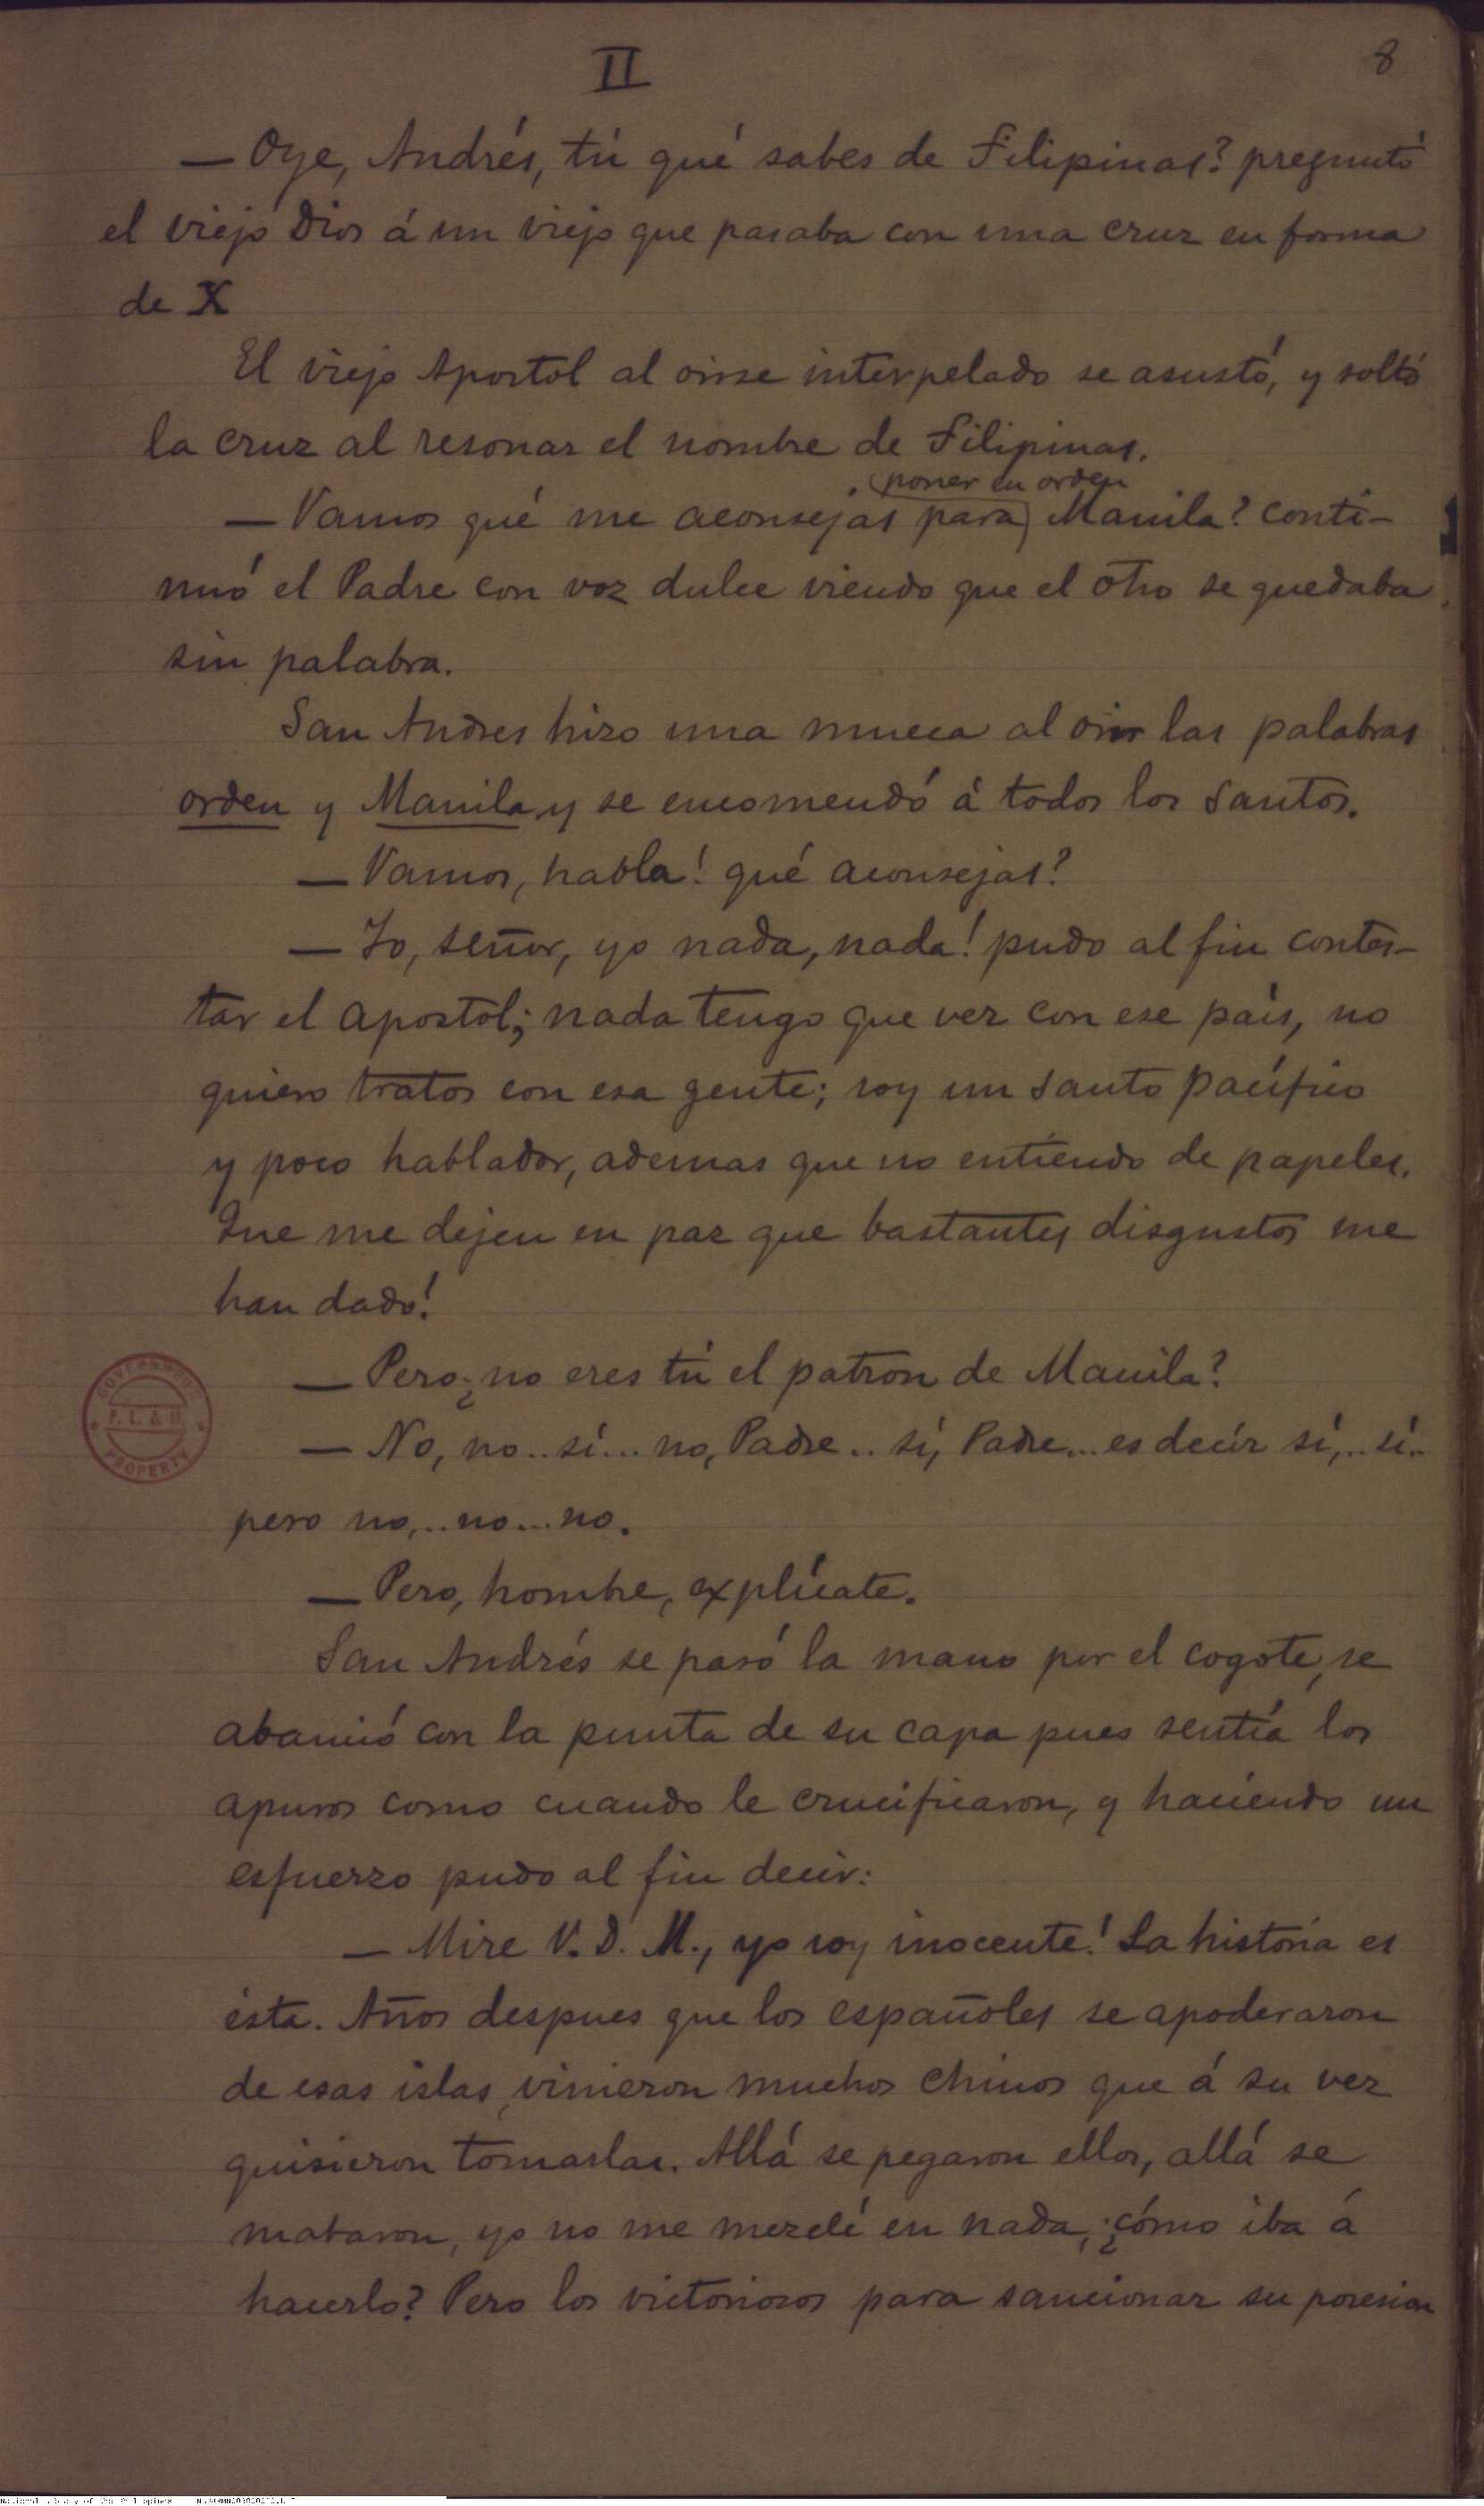 II
8
— Oye, Andrés, tú qué sabes de Filipinas? preguntó
el viejo Dios á un viejo que pasaba con una cruz en forma
de X
El viejo Apostol al oirse interpelado se asustó, y soltó
la cruz al resonar el nombre de Filipinas.
poner en orden
— Vamos qué me aconsejas para Manila? conti-
nuó el Padre con voz dulce viendo que el otro se quedaba
sin palabra.
San Andres hizo una mueca al oir las palabras
orden y Manila y se encomendó á todos los santos.
— Vamos, habla! qué aconsejas?
— Yo, señor, yo nada, nada! pudo al fin contes-
tar el apostol; nada tengo que ver con ese país, no
quiero tratos con esa gente; soy un santo pacífico
y poco hablador, ademas que no entiendo de papeles.
Que me dejen en paz que bastantes disgustos me
han dado!
— Pero ¿no eres tú el patron de Manila?
— No, no.. sí... no, Padre.. sí, Padre... es decir sí,.. sí..
pero no,.. no... no.
— Pero, hombre, explícate.
San Andrés se pasó la mano por el cogote, se
abanicó con la punta de su capa pues sentía los
apuros como cuando le crucificaron, y haciendo un
esfuerzo pudo al fin decir:
— Mire V. D. M., yo soy inocente! La historia es
ésta. Años despues que los españoles se apoderaron
de esas islas, vinieron muchos chinos que á su vez
quisieron tomarlas. Allá se pegaron ellos, allá se
mataron, yo no me mezclé en nada, ¿cómo iba á
hacerlo? Pero los victoriosos para sancionar su posesion
GOVERNMENT
P. L. & M.
PROPERTY
National Library of the Philippines